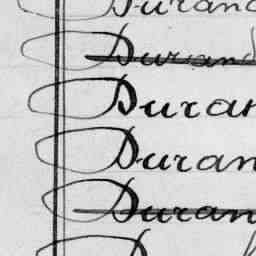 Durand
Durand
Duran
Duran
Duran
D